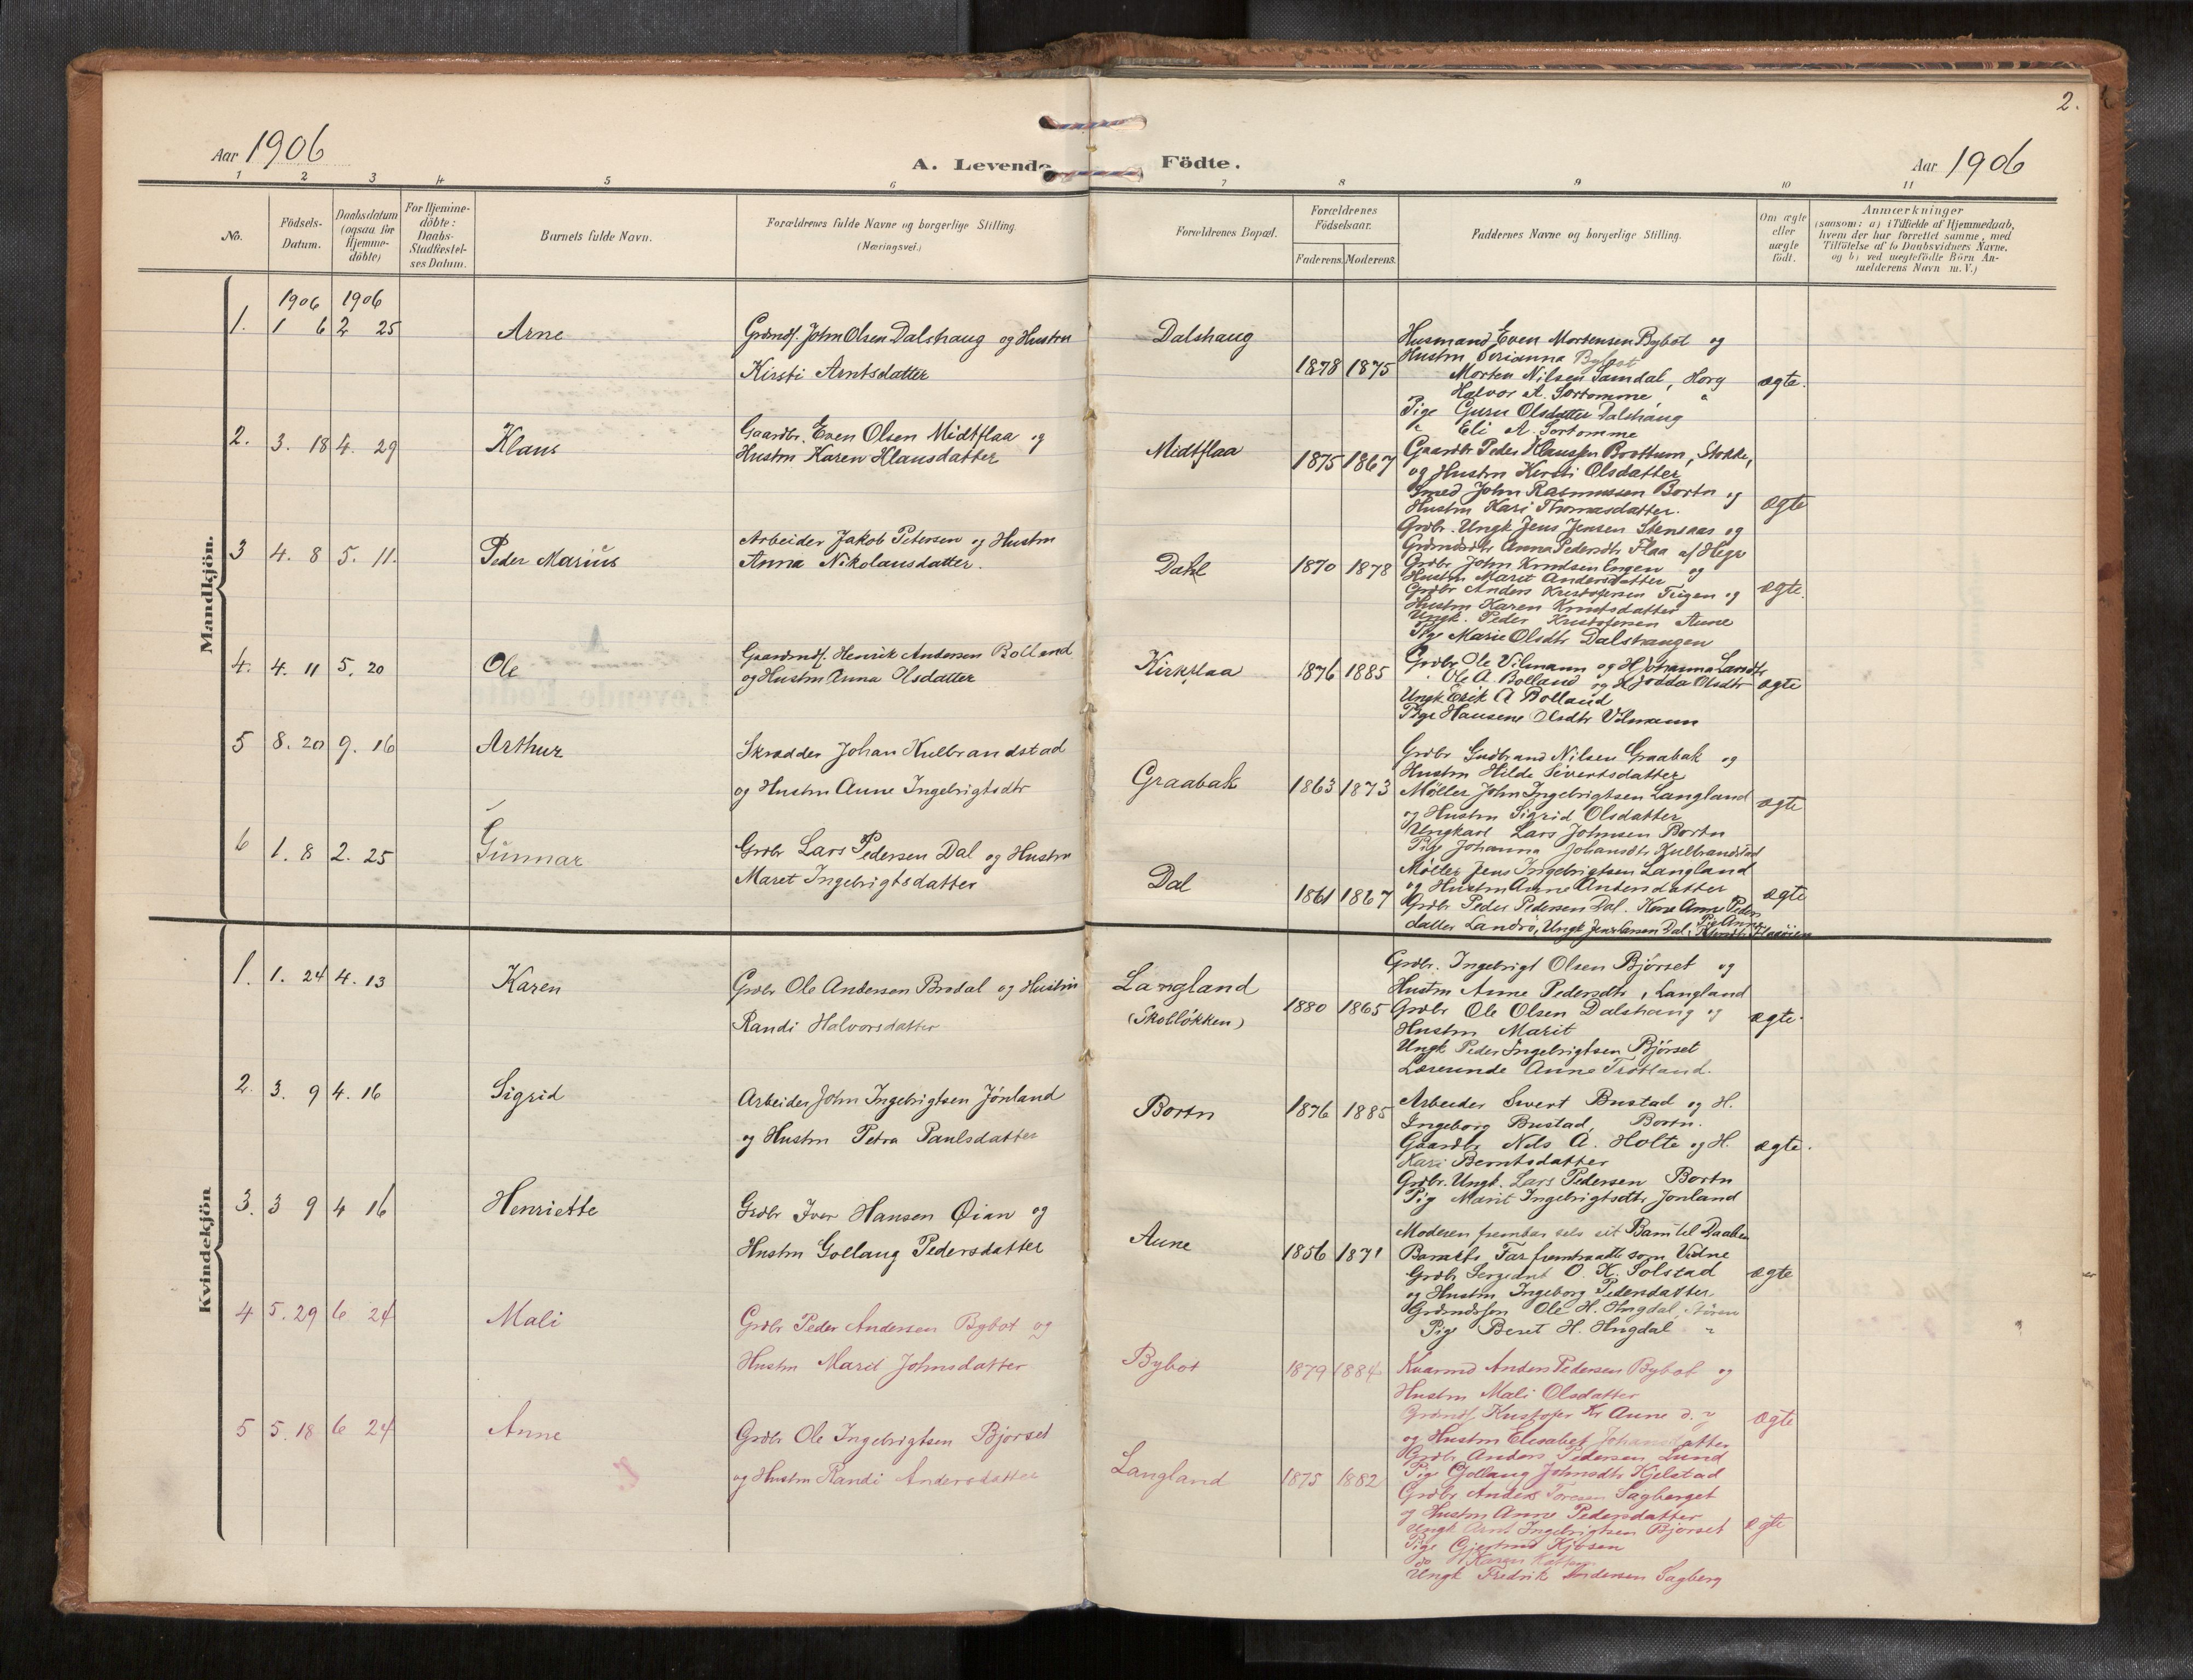 2.
Aar 1906
A. Levende Födte.
Aar 1906
1 2 3 4 5 6 7 8 9 10 11
No.
Födsels-Datum.
Daabsdatum (ogsaa for Hjemme-döbte)
For Hjemme-döbte: Daabs-Stadfæstel-ses Datum.
Barnets fulde Navn.
Forældrenes fulde Navne og borgerlige Stilling.
(Næringsvei.)
Forældrenes Bopæl.
Forældrenes Födselsaar.
Faderens. Moderens.
Faddernes Navne og borgerlige Stilling.
Om ægte eller uægte födt.
Anmærkninger
(saasom: a) i Tilfælde af Hjemmedaab,
hvem der har forrettet samme, med
Tilföielse af to Daabsvidners Navne,
og b) ved uægtefödte Börn An-
melderens Navn m. V.)
Mandkjön.
1906 1906
1. 1 6 2 25 Arne
Grdmds. John Olsen Dalshaug og Hustru
Kirsti Arntsdatter
Dalshaug
1878 1875
Husmand Even Mortensen Bybot og
Hustru Serianna Bybot
Morten Nilsen Samdal, Horg
Halvor A. Sortomme "
Pige Guru Olsdatter Dalshaug
" Eli A. Sortomme
ægte.
2. 3. 18 4. 29 Klaus
Gaardbr. Even Olsen Midtflaa og
Hustru Karen Klausdatter
Midtflaa
1875 1867
Gaardbr Peder Klaussen Brottum, Stokke,
og Hustru Kersti Olsdatter
Smed John Rasmussen Bortn og
Hustru Kari Thomasdatter.
Grdbr. Ungk Jens Jensen Stensaas og
Grdmdsdtr Anna Pedersdtr Flaa af Hegre
ægte
3 4. 8 5. 11. Peder Marius
Arbeider Jakob Petersen og Hustru
Anna Nikolausdatter.
Dahl
1870 1878
Grdbr John Knudsen Engen og
Hustru Marit Andersdatter
Grdbr Anders Kristofersen Teigen og
Hustru Karen Knutsdatter
Ungk. Peder Kristofersen Aune
Pige Marie Olsdtr Dalshaugen
ægte.
4. 4. 11 5. 20 Ole
Gaardmds. Henrik Andersen Bolland
og Hustru Anna Olsdatter
Kirkflaa
1876 1885
Grdbr Ole Vilmann og H Johanna Larsdtr
" Ole A. Bolland og H Jodda Olsdtr
Ungk Erik A Bolland
Pige Hansene Olsdtr Vilmann
ægte
5 8. 20 9. 16 Arthur
Skrædder Johan Kulbrandstad
og Hustru Anne Ingebrigtsdtr
Graabak
1863 1873
Grdbr Gudbrand Nilsen Graabak og
Hustru Hilde Sivertsdatter
Møller John Ingebrigtsen Langland
og Hustru Sigrid Olsdatter
Ungkarl Lars Johnsen Bortn
Pige Johanna Johansdtr Kulbrandstad
ægte
6 1. 8 2. 25 Gunnar
Grdbr Lars Pedersen Dal og Hustru
Maret Ingebrigtsdatter
Dal
1861 1867
Møller Jens Ingebrigtsen Langland
og Hustru Anne Andersdatter
Grdbr Peder Pedersen Dal. Kone Anne Peders
datter Landrö, Ungk Jens Larsen Dal, Pig Anne
ægte
Kvindekjön
1. 1. 24 4. 13 Karen
Grdbr Ole Andersen Brodal og Hustru
Randi Halvorsdatter
Langland
(Skolløkken)
1880 1865
Grdbr. Ingebrigt Olsen Bjørset og
Hustru Anne Pedersdtr, Langland
Grdbr Ole Olsen Dalshaug og
Hustru Marit
Ungk Peder Ingebrigtsen Bjørset
Lærerinde Anne Trötland.
ægte.
2. 3. 9 4. 16 Sigrid
Arbeider John Ingebrigtsen Jönland
og Hustru Petra Paulsdatter
Bortn
1876 1885
Arbeider Sivert Bustad og H.
Ingeborg Bustad, Bortn.
Gaardbr Nils A. Holte og H.
Kari Berntsdatter
Grdbr. Ungk. Lars Pedersen Bortn
Pig Marit Ingebrigtsdtr Jonland
ægte.
3. 3 9 4 16 Henriette
Grdbr Iver Hansen Øian og
Hustru Gollaug Pedersdatter
Aune
1856 1871
Moderen frembar selv sit Barn til Daaben
Barnets Far fremtraadte som Vidne
Grdb Sergeant O. K. Solstad
og Hustru Ingeborg Pedersdatter
Grdmdssøn Ole H. Hugdal, Støren
Pige Beret H. Hugdal "
ægte
4 5. 29 6 24 Mali
Grdbr Peder Andersen Bybot og
Hustru Marit Johnsdatter
Bybot
1879 1884
Kaarmd Anders Pedersen Bybot og
Hustru Mali Olsdatter
Grdmds Kristofer Kr Aune d. y
og Hustru Elisabet Johansdatter
Grdbr Anders Pedersen Lund
Pig Gollaug Johnsdtr Kjelstad
ægte
5 5. 18 6 24 Anne
Grdbr Ole Ingebrigtsen Bjørset
og Hustru Randi Andersdatter
Langland
1875 1882
Grdbr Anders Toresen Sagberget
og Hustru Anne Pedersdatter
Ungk Arnt Ingebrigtsen Bjorset
Pige Gjertrud Kjösen
do Karen
Ungk Fredrik Andersen Sagberg
ægte